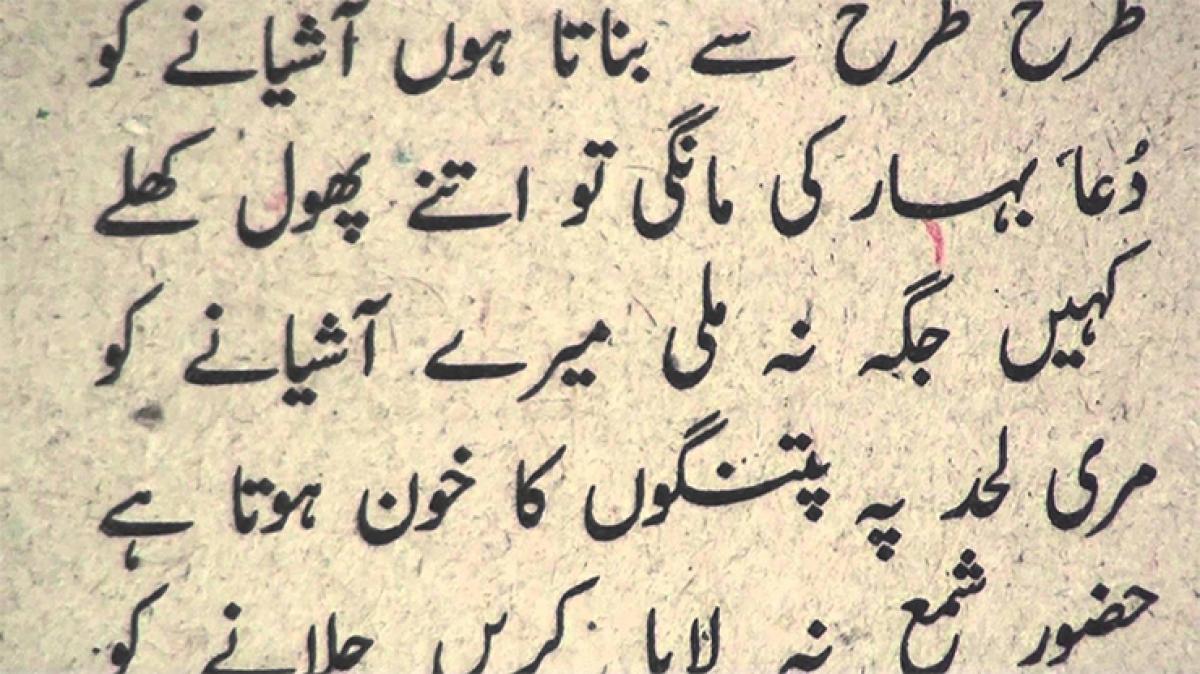 طرح طرح سے بناتا ہوں آشیانے کو
دُعا بہار کی مانگی تو اتنے پھول کھلے
کہیں جگہ نہ ملی میرے آشیانے کو
مری لحد پہ پتنگوں کا خون ہوتا ہے
حضور شمع نہ لایا کریں جلانے کو